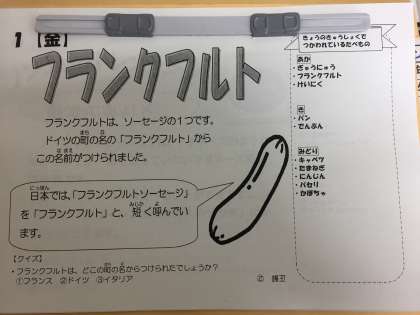 1【金】
フランクフルト
フランクフルトは、ソーセージの1つです。
ドイツの町の名の「フランクフルト」から
この名前がつけられました。
日本では、「フランクフルトソーセージ」
を「フランクフルト」と、短く呼んでい
ます。
【クイズ】
・フランクフルトは、どこの町の名からつけられたでしょうか？
①フランス ②ドイツ ③イタリア
きょうのきゅうしょくで
つかわれているたべもの
あか
・ぎゅうにゅう
・フランクフルト
・けいにく
き
・パン
・でんぷん
みどり
・キャベツ
・たまねぎ
・にんじん
・パセリ
・かぼちゃ